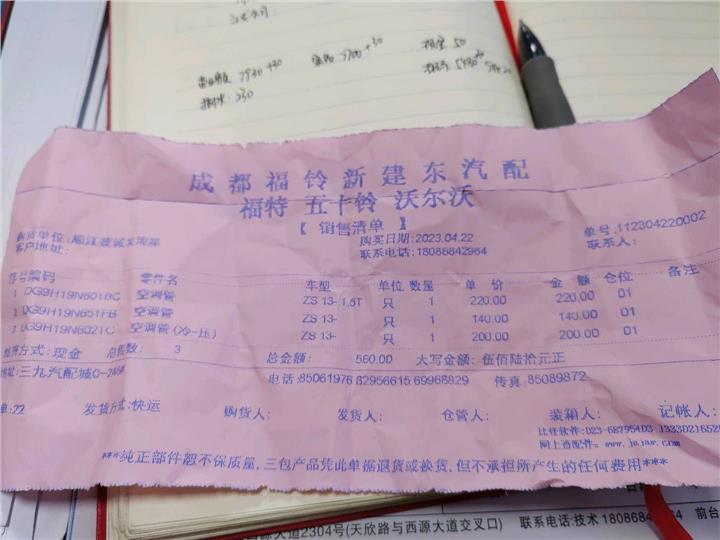 7930+30
7700+30
50
230
成都福铃新建东汽配
福特 五十铃 沃尔沃
【 销售清单 】
收货单位:
购买日期:2023.04.22
单号:112304220002
客户地址:
联系电话:18086842964
联系人:
序号编码 零件名 车型 单位 数量 单 价 金 额 仓位 备注
1 DG9H19N601BC 空调管 ZS 13- 1.5T 只 1 220.00 220.00 01
2 DG9H19N651FB 空调管 ZS 13- 只 1 140.00 140.00 01
3 DG9H19N602TC 空调管(冷-压) ZS 13- 只 1 200.00 200.00 01
结算方式:现金 总数数: 3 总金额: 560.00 大写金额: 伍佰陆拾元正
地址:三九汽配城 电话:85061976 82956615 69968829 传真:85089872
单:22 发货方式:快运 购货人: 发货人: 仓管人: 装箱人: 记帐人:
比任软件:023-68795403
***纯正部件恕不保质量,三包产品凭此单据退货或换货,但不承担所产生的任何费用***
西源大道2304号(天欣路与西源大道交叉口) 联系电话:技术 前台